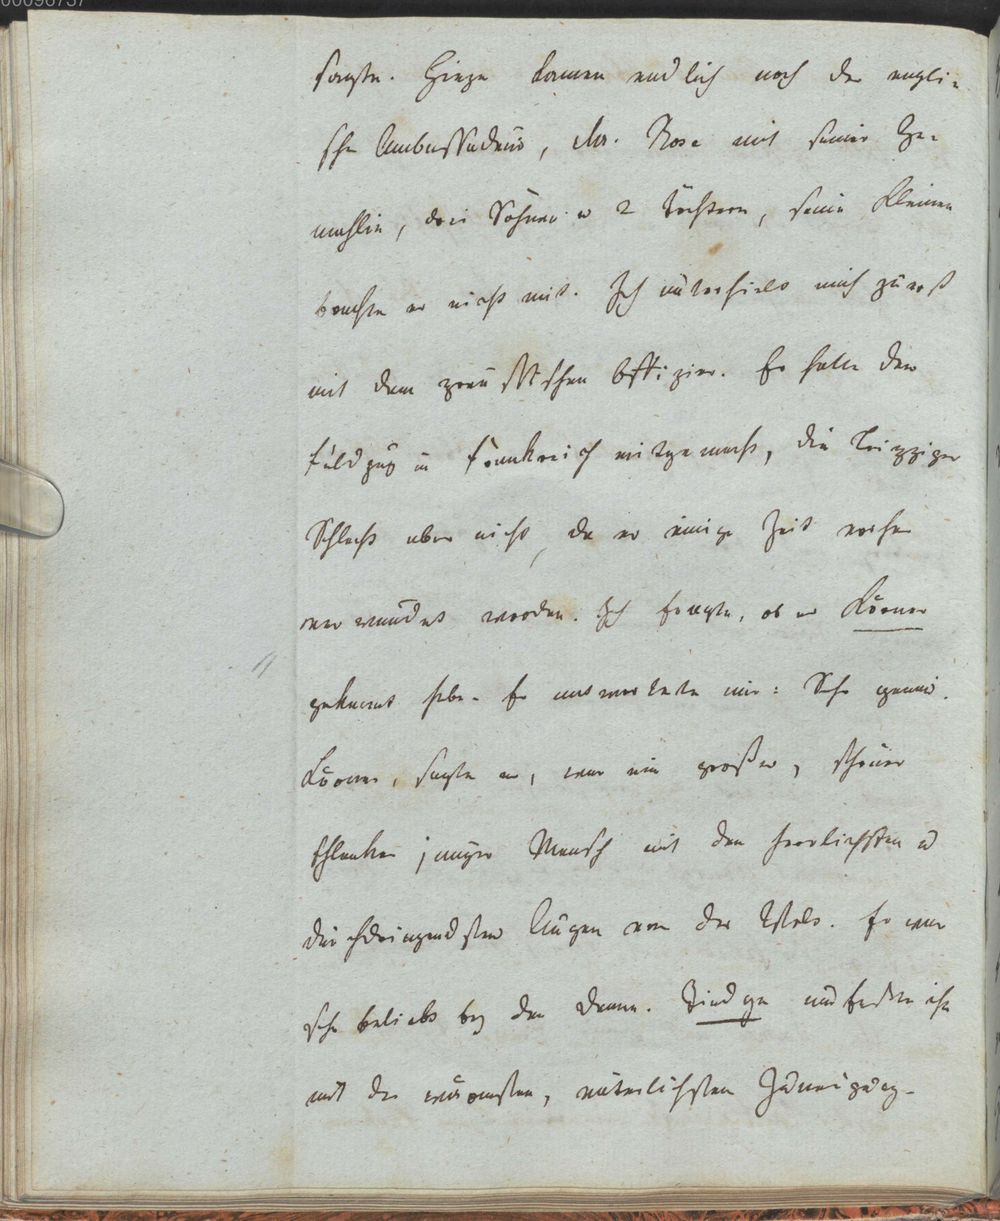 00096737
sorgte. Hiezu kamen endlich noch der engli-
sche Ambassadeur, Mr. Rose mit seiner Ge-
mahlin, drei Söhnen u 2 Töchtern, seine Kleinen
brachte er nicht mit. Ich unterhielt mich zuerst
mit dem preussischen Offizier. Er hatte den
Feldzug in Frankreich mitgemacht, die Leipziger
Schlacht aber nicht, da er einige Zeit vorher
verwundet worden. Ich fragte, ob er Körner
gekannt habe. Er antwortete mir: Sehr genau.
Körner, sagte er, war ein großer, schöner
schlanker junger Mensch mit den herrlichsten u
durchdringendsten Augen von der Welt. Er war
sehr beliebt bey der Armee. Tiedge umfaßte ihn
mit der wärmsten, väterlichsten Zuneigung.